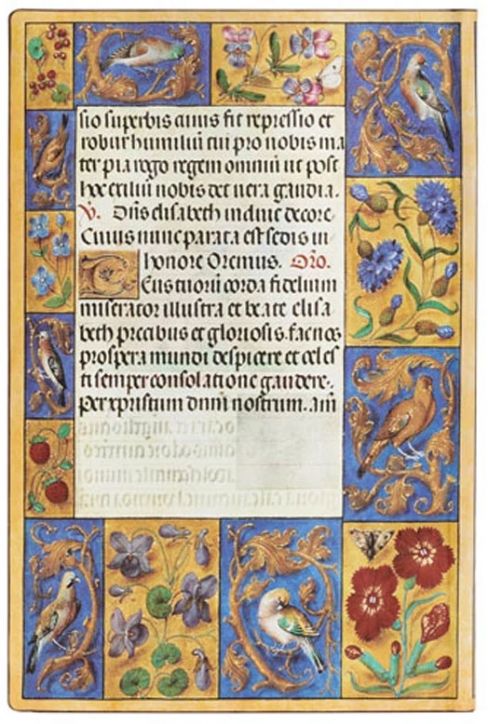 sio superbis cuius fit repressio et
robur humiliū tui pro nobis ma
ter pia rogo regem omniū ut post
hoc exiliū nobis det uera gaudia.
V. Dñs elisabeth induic decore
Cuius nunc parata est sedis in
honore Oremus. Oro.
Eus tuorū corda fidelium
miserator illustra et beate elisa
beth precibus et gloriosis. fac nos
prospera mundi despicere et celes
ti semper consolatione gaudere.
Per xpristum dnm nostrum. am